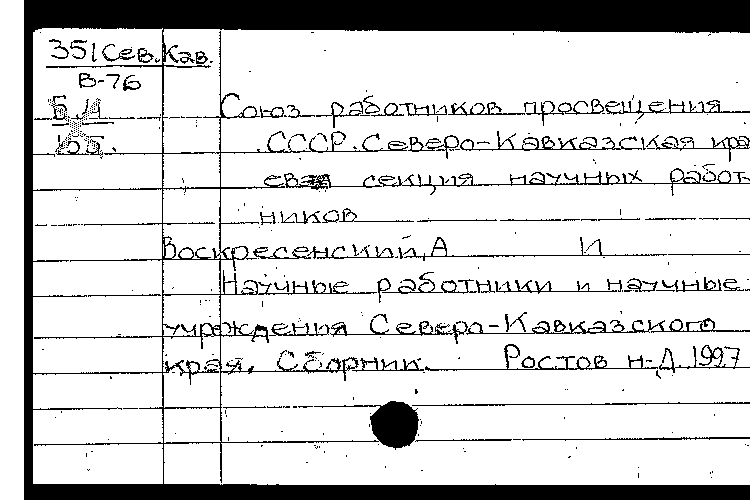 351 Сев.Кав.
В-76
Союз работников просвещения
СССР. Северо-Кавказская кра
евая секция научных работ
ников
Воскресенский, А И
Научные работники и научные
учреждения Северо-Кавказского
края. Сборник. Ростов н-Д. 1997